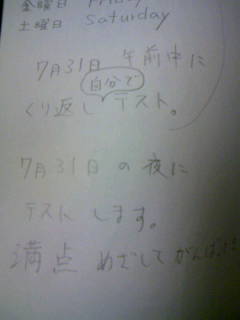 金曜日
土曜日 Saturday
7月31日 午前中に
自分で
くり返し テスト。
7月31日の夜に
テストします。
満点 めざしてがんばれ!!